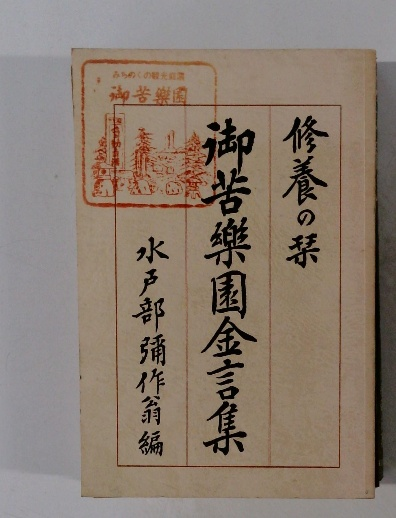 修養の栞
御苦樂園金言集
水戸部彌作翁編
みちのくの観光銘所
御苦樂園